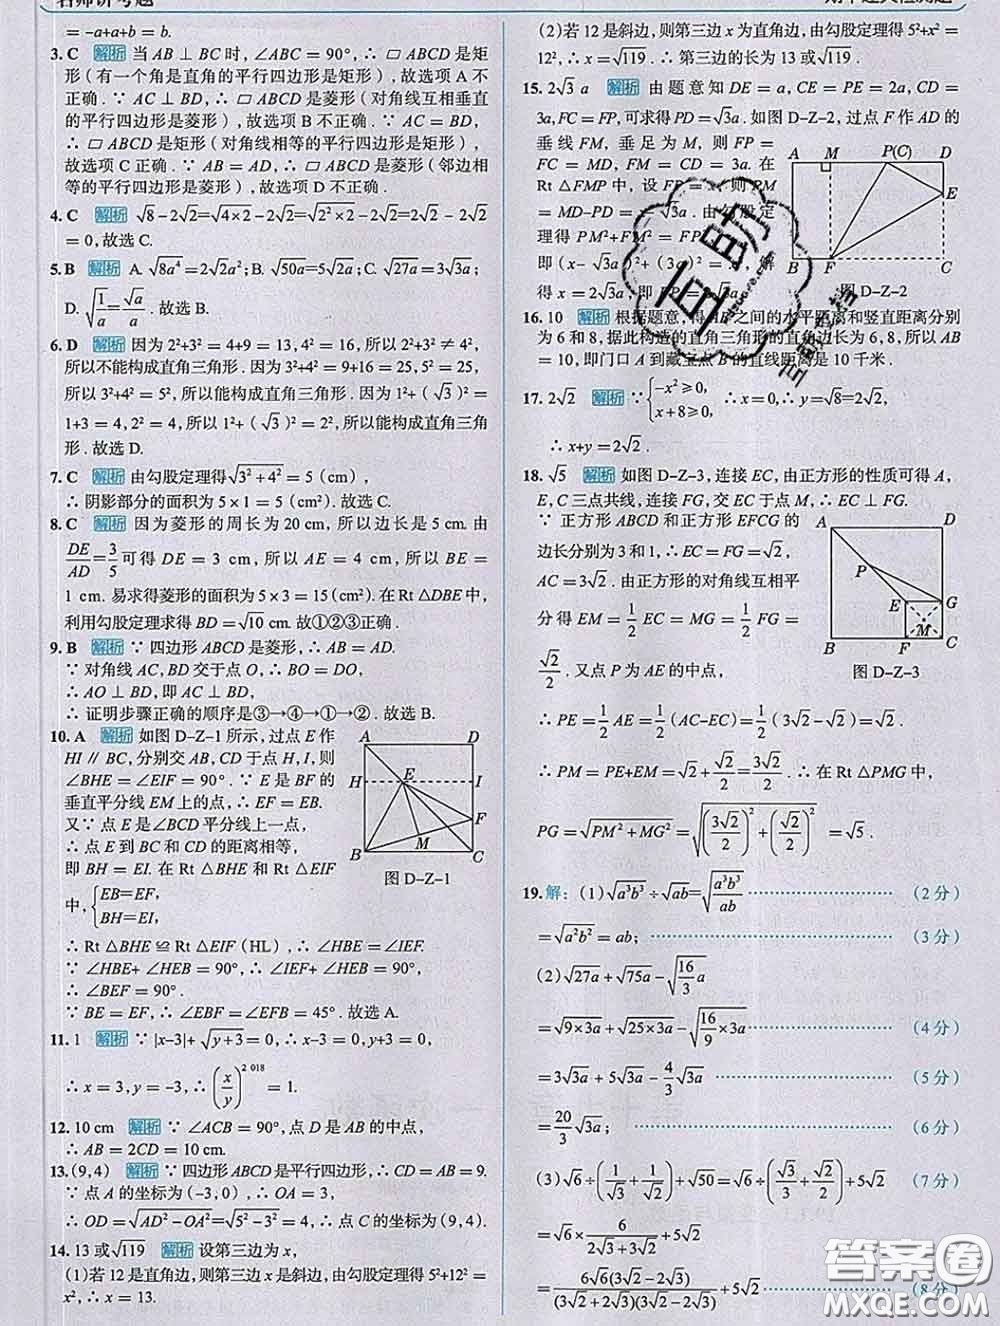 = -a+a+b = b.
3. C 解析 当 AB ⊥ BC 时, ∠ABC = 90°, ∴ ▱ ABCD 是矩
形(有一个角是直角的平行四边形是矩形), 故选项 A 不
正确. ∵ AC ⊥ BD, ∴ ▱ ABCD 是菱形(对角线互相垂直
的平行四边形是菱形), 故选项 B 不正确. ∵ AC = BD,
∴ ▱ ABCD 是矩形(对角线相等的平行四边形是矩形),
故选项 C 正确. ∵ AB = AD, ∴ ▱ ABCD 是菱形(邻边相
等的平行四边形是菱形), 故选项 D 不正确.
4. C 解析 √8-2√2=√(4×2)-2√2=√(2²×2)-2√2=2√2-2√2
= 0, 故选 C.
5. B 解析 A. √(8a⁴)=2√2a²; B. √(50a)=5√(2a); C. √(27a)=3√(3a);
D. √(1/a)=√a/a. 故选 B.
6. D 解析 因为 2²+3² = 4+9 = 13, 4² = 16, 所以 2²+3² ≠ 4²,
所以不能构成直角三角形. 因为 3²+4² = 9+16 = 25, 5² = 25,
所以 3²+4² = 5², 所以能构成直角三角形. 因为 1²+(√3)² =
1+3 = 4, 2² = 4, 所以 1²+(√3)² = 2², 所以能构成直角三角
形. 故选 D.
7. C 解析 由勾股定理得√(3²+4²) = 5 (cm),
∴ 阴影部分的面积为 5 × 1 = 5 (cm²). 故选 C.
8. C 解析 因为菱形的周长为 20 cm, 所以边长是 5 cm. 由
DE/AD=3/5可得 DE = 3 cm, 所以 AE = 4 cm, 所以 BE =
1 cm. 易求得菱形的面积为 5 × 3 = 15 (cm²). 在 Rt △DBE 中,
利用勾股定理求得 BD = √10 cm. 故①②③正确.
9. B 解析 ∵ 四边形 ABCD 是菱形, ∴ AB = AD.
∵ 对角线 AC, BD 交于点 O, ∴ BO = DO,
∴ AO ⊥ BD, 即 AC ⊥ BD,
∴ 证明步骤正确的顺序是③→④→①→②. 故选 B.
10. A 解析 如图 D-Z-1 所示, 过点 E 作
HI ∥ BC, 分别交 AB, CD 于点 H, I, 则
∠BHE = ∠EIF = 90°. ∵ E 是 BF 的
垂直平分线 EM 上的点, ∴ EF = EB.
又∵ 点 E 是∠BCD 平分线上一点,
∴ 点 E 到 BC 和 CD 的距离相等,
即 BH = EI. 在 Rt △BHE 和 Rt △EIF
中, {EB=EF, BH=EI,
A D H E I F M B C
图 D-Z-1
∴ Rt △BHE ≌ Rt △EIF (HL), ∴ ∠HBE = ∠IEF.
∵ ∠HBE+ ∠HEB = 90°, ∴ ∠IEF+ ∠HEB = 90°,
∴ ∠BEF = 90°.
∵ BE = EF, ∴ ∠EBF = ∠EFB = 45°. 故选 A.
11. 1 解析 ∵ |x-3|+√(y+3) = 0, ∴ x-3 = 0, y+3 = 0,
∴ x = 3, y = -3, ∴ (x/y)^2 018 = 1.
12. 10 cm 解析 ∵ ∠ACB = 90°, 点 D 是 AB 的中点,
∴ AB = 2CD = 10 cm.
13. (9, 4) 解析 ∵ 四边形 ABCD 是平行四边形, ∴ CD = AB = 9.
∵ 点 A 的坐标为 (-3, 0), ∴ OA = 3,
∴ OD = √(AD²-OA²) = √(5²-3²) = 4, ∴ 点 C 的坐标为 (9, 4).
14. 13 或√119 解析 设第三边为 x,
(1) 若 12 是直角边, 则第三边 x 是斜边, 由勾股定理得 5²+12² =
x², ∴ x = 13.
(2) 若 12 是斜边, 则第三边 x 为直角边, 由勾股定理得 5²+x² =
12², ∴ x = √119. ∴ 第三边的长为 13 或√119.
15. 2√3 a 解析 由题意知 DE = a, CE = PE = 2a, CD =
3a, FC = FP, 可求得 PD = √3a. 如图 D-Z-2, 过点 F 作 AD 的
垂线 FM, 垂足为 M, 则 FP =
FC = MD, FM = CD = 3a. 在
Rt △FMP 中, 设 FP = 则 PM
= MD-PD = √3a. 由勾股定
理得 PM²+FM² = FP
即 (x-√3a)²+(3a)² = 解
得 x = 2√3a, 即 FP = 2√3a.
A M P(C) D E B F C
图 D-Z-2
16. 10 解析 根据题意, 得 AB 之间的水平距离和竖直距离分别
为 6 和 8, 据此构造的直角三角形的直角边长为 6, 8, 所以 AB
= 10, 即门口 A 到藏宝点 B 的直线距离是 10 千米.
17. 2√2 解析 ∵ {-x²≥0, x+8≥0, ∴ x=0, ∴ y=√8=2√2,
∴ x+y = 2√2.
18. √5 解析 如图 D-Z-3, 连接 EC, 由正方形的性质可得 A,
E, C 三点共线, 连接 FG, 交 EC 于点 M, ∴ EC ⊥ FG.
∵ 正方形 ABCD 和正方形 EFCG 的
边长分别为 3 和 1, ∴ EC = FG = √2,
AC = 3√2. 由正方形的对角线互相平
分得 EM = 1/2 EC = MG = 1/2 FG =
√2/2. 又点 P 为 AE 的中点,
A D P E G M B F C
图 D-Z-3
∴ PE = 1/2 AE = 1/2 (AC-EC) = 1/2 (3√2-√2) = √2.
∴ PM = PE+EM = √2+√2/2 = 3√2/2. ∴ 在 Rt △PMG 中,
PG = √(PM²+MG²) = √((3√2/2)²+(√2/2)²) = √5.
19. 解: (1) √(a³b³) ÷ √(ab) = √(a³b³/ab) (2 分)
= √(a²b²) = ab; (3 分)
(2) √(27a)+√(75a)-√(16/3 a)
= √(9×3a)+√(25×3a)-√(16/9×3a) (4 分)
= 3√(3a)+5√(3a)-4/3√(3a) (5 分)
= 20/3 √(3a); (6 分)
(3) √6÷(1/√3+1/√2)+√50 = √6÷(√3/3+√2/2)+5√2 (7 分)
= √6×6/(2√3+3√2)+5√2
= 6√6(3√2-2√3)/((3√2+2√3)(3√2-2√3))+5√2 (8 分)
答案圈
MXQE.COM